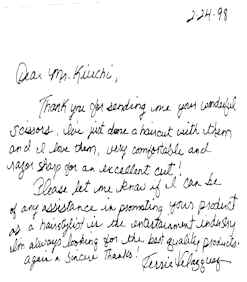 2-24-98
Dear Mr. Kiuchi,
Thank you for sending me your wonderful
scissors. I've just done a haircut with them
and I love them, very comfortable and
razor sharp for an excellent cut!
Please let me know if I can be
of any assistance in promoting your product
as a hairstylist in the entertainment industry
I'm always looking for the best quality products.
Again a sincere thanks! Terrie Velazquez